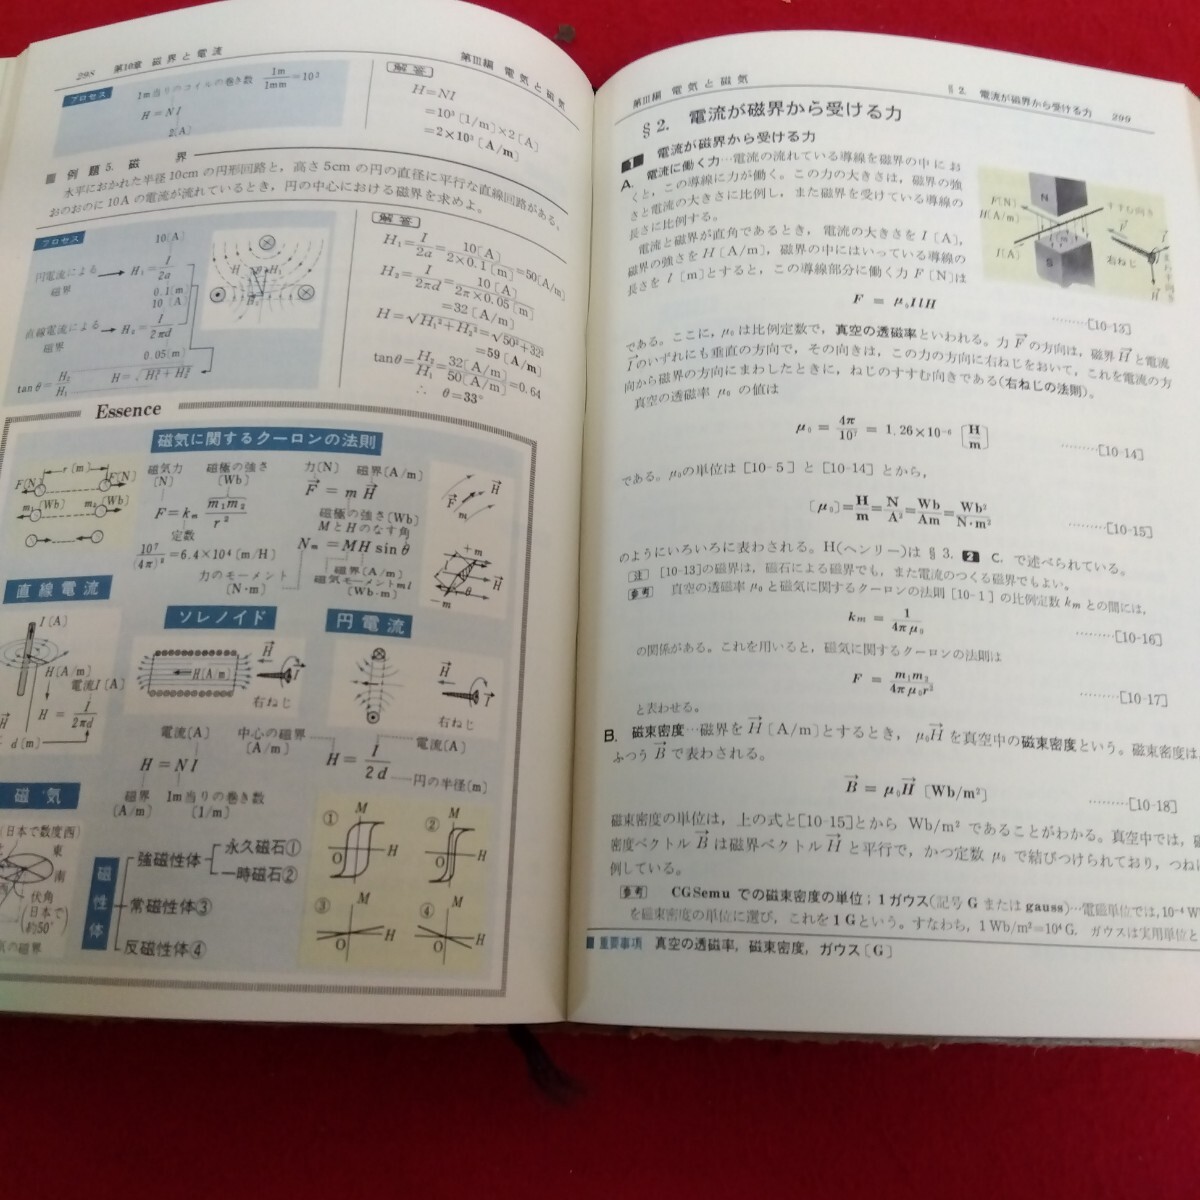 298 第10章 磁界と電流
第III編 電気と磁気
プロセス
1m当りのコイルの巻き数 1m/1mm=10³
H=NI
2〔A〕
解答
H=NI
=10³〔1/m〕×2〔A〕
=2×10³〔A/m〕
例題5. 磁界
水平におかれた半径10cmの円形回路と，高さ5cmの円の直径に平行な直線回路がある。
おのおのに10Aの電流が流れているとき，円の中心における磁界を求めよ。
プロセス
10〔A〕
円電流による磁界 → H₁=I/2a
0.1〔m〕
10〔A〕
直線電流による磁界 → H₂=I/2πd
0.05〔m〕
tanθ=H₂/H₁ H=√H₁²+H₂²
解答
H₁=I/2a=10〔A〕/2×0.1〔m〕=50〔A/m〕
H₂=I/2πd=10〔A〕/2π×0.05〔m〕
=32〔A/m〕
H=√H₁²+H₂²=√50²+32²
=59〔A/m〕
tanθ=H₂/H₁=32〔A/m〕/50〔A/m〕=0.64
∴ θ=33°
Essence
磁気に関するクーロンの法則
r〔m〕
F〔N〕 F〔N〕
m₁〔Wb〕 m₂〔Wb〕
磁気力〔N〕 磁極の強さ〔Wb〕
F=kₘ m₁m₂/r²
定数
10⁷/(4π)²=6.4×10⁴〔m/H〕
力〔N〕 磁界〔A/m〕
F=mH
磁極の強さ〔Wb〕
MとHのなす角
Nₘ=MH sinθ
磁界〔A/m〕
力のモーメント〔N·m〕
磁気モーメントml〔Wb·m〕
直線電流
I〔A〕
H〔A/m〕
電流I〔A〕
H=I/2πd
d〔m〕
ソレノイド
H〔A/m〕
右ねじ
電流〔A〕
H=NI
磁界〔A/m〕 1m当りの巻き数〔1/m〕
円電流
右ねじ
中心の磁界〔A/m〕
電流〔A〕
H=I/2d
円の半径〔m〕
磁気
(日本で数度西)
東
南
西
伏角
(日本で約50°)
磁性体
強磁性体
永久磁石①
一時磁石②
常磁性体③
反磁性体④
① M H O
② M H O
③ M H O
④ M H O
第III編 電気と磁気
§2. 電流が磁界から受ける力 299
§2. 電流が磁界から受ける力
1 電流が磁界から受ける力
A. 電流に働く力…電流の流れている導線を磁界の中にお
くと，この導線に力が働く。この力の大きさは，磁界の強
さと電流の大きさに比例し，また磁界を受けている導線の
長さに比例する。
電流と磁界が直角であるとき，電流の大きさをI〔A〕，
磁界の強さをH〔A/m〕，磁界の中にはいっている導線の
長さをl〔m〕とすると，この導線部分に働く力F〔N〕は
N
F〔N〕
H〔A/m〕
I〔A〕
S
すすむ向き
右ねじ
まわす向き
F = μ₀IlH ………[10-13]
である。ここに，μ₀は比例定数で，真空の透磁率といわれる。力Fの方向は，磁界Hと電流
Iのいずれにも垂直の方向で，その向きは，この力の方向に右ねじをおいて，これを電流の方
向から磁界の方向にまわしたときに，ねじのすすむ向きである(右ねじの法則)。
真空の透磁率μ₀の値は
μ₀ = 4π/10⁷ = 1.26×10⁻⁶ [H/m] ………[10-14]
である。μ₀の単位は[10-5]と[10-14]とから，
[μ₀]=H/m=N/A²=Wb/Am=Wb²/N·m² ………[10-15]
のようにいろいろに表わされる。H(ヘンリー)は§3. 2 C. で述べられている。
注 [10-13]の磁界は，磁石による磁界でも，また電流のつくる磁界でもよい。
参考 真空の透磁率μ₀と磁気に関するクーロンの法則[10-1]の比例定数kₘとの間には，
kₘ = 1/4πμ₀ ………[10-16]
の関係がある。これを用いると，磁気に関するクーロンの法則は
F = m₁m₂/4πμ₀r² ………[10-17]
と表わせる。
B. 磁束密度…磁界をH〔A/m〕とするとき，μ₀Hを真空中の磁束密度という。磁束密度は，
ふつうBで表わされる。
B = μ₀H [Wb/m²] ………[10-18]
磁束密度の単位は，上の式と[10-15]とからWb/m²であることがわかる。真空中では，磁
密度ベクトルBは磁界ベクトルHと平行で，かつ定数μ₀で結びつけられており，つねに
例している。
参考 CGSemuでの磁束密度の単位；1ガウス(記号Gまたはgauss)…電磁単位では，10⁻⁴W
を磁束密度の単位に選び，これを1Gという。すなわち，1Wb/m²=10⁴G. ガウスは実用単位と
重要事項 真空の透磁率，磁束密度，ガウス〔G〕